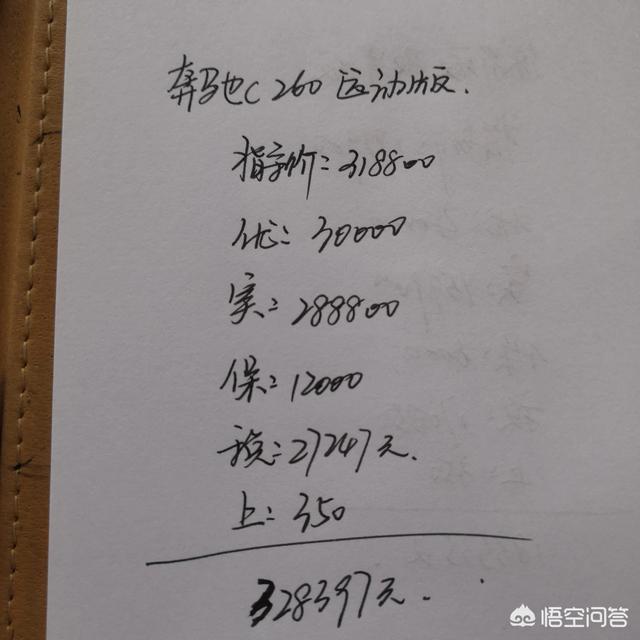 奔驰C260运动版.
指导价:318800
优:30000
实:288800
保:12000
税:27247元.
上:350
328397元.
悟空问答